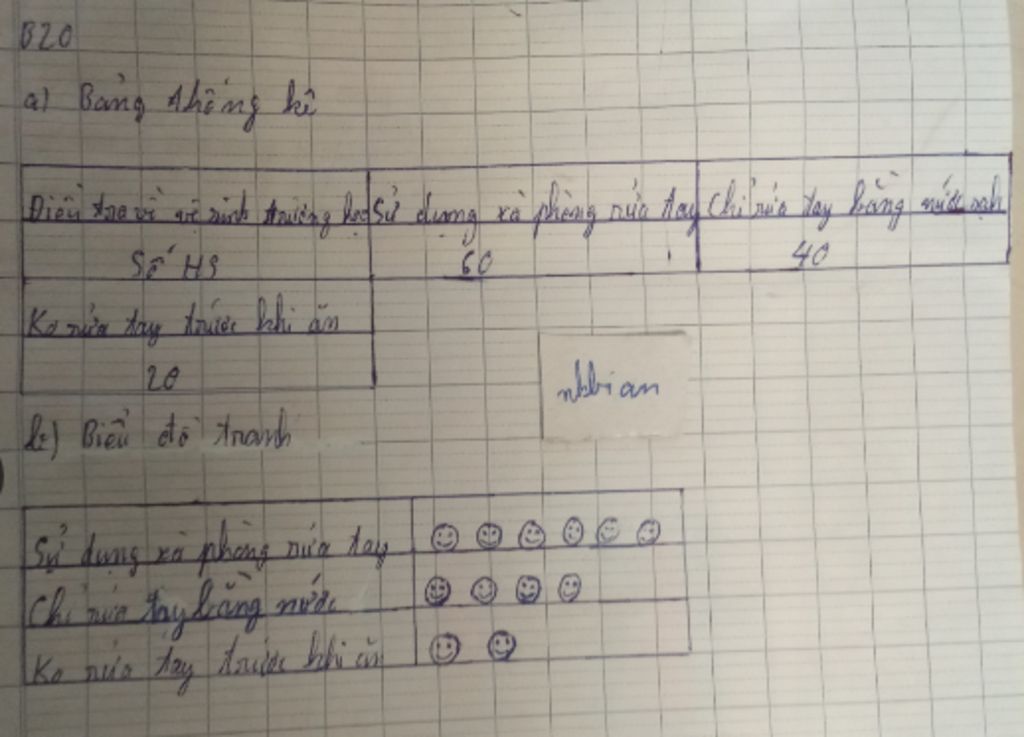 B20
a) Bảng thống kê
Điều tra về vệ sinh trường học Sử dụng xà phòng rửa tay Chỉ rửa tay bằng nước sạch
Số HS 60 40
Ko rửa tay trước khi ăn
20
nhbi an
b) Biểu đồ tranh
Sử dụng xà phòng rửa tay
Chỉ rửa tay bằng nước
Ko rửa tay trước khi ăn